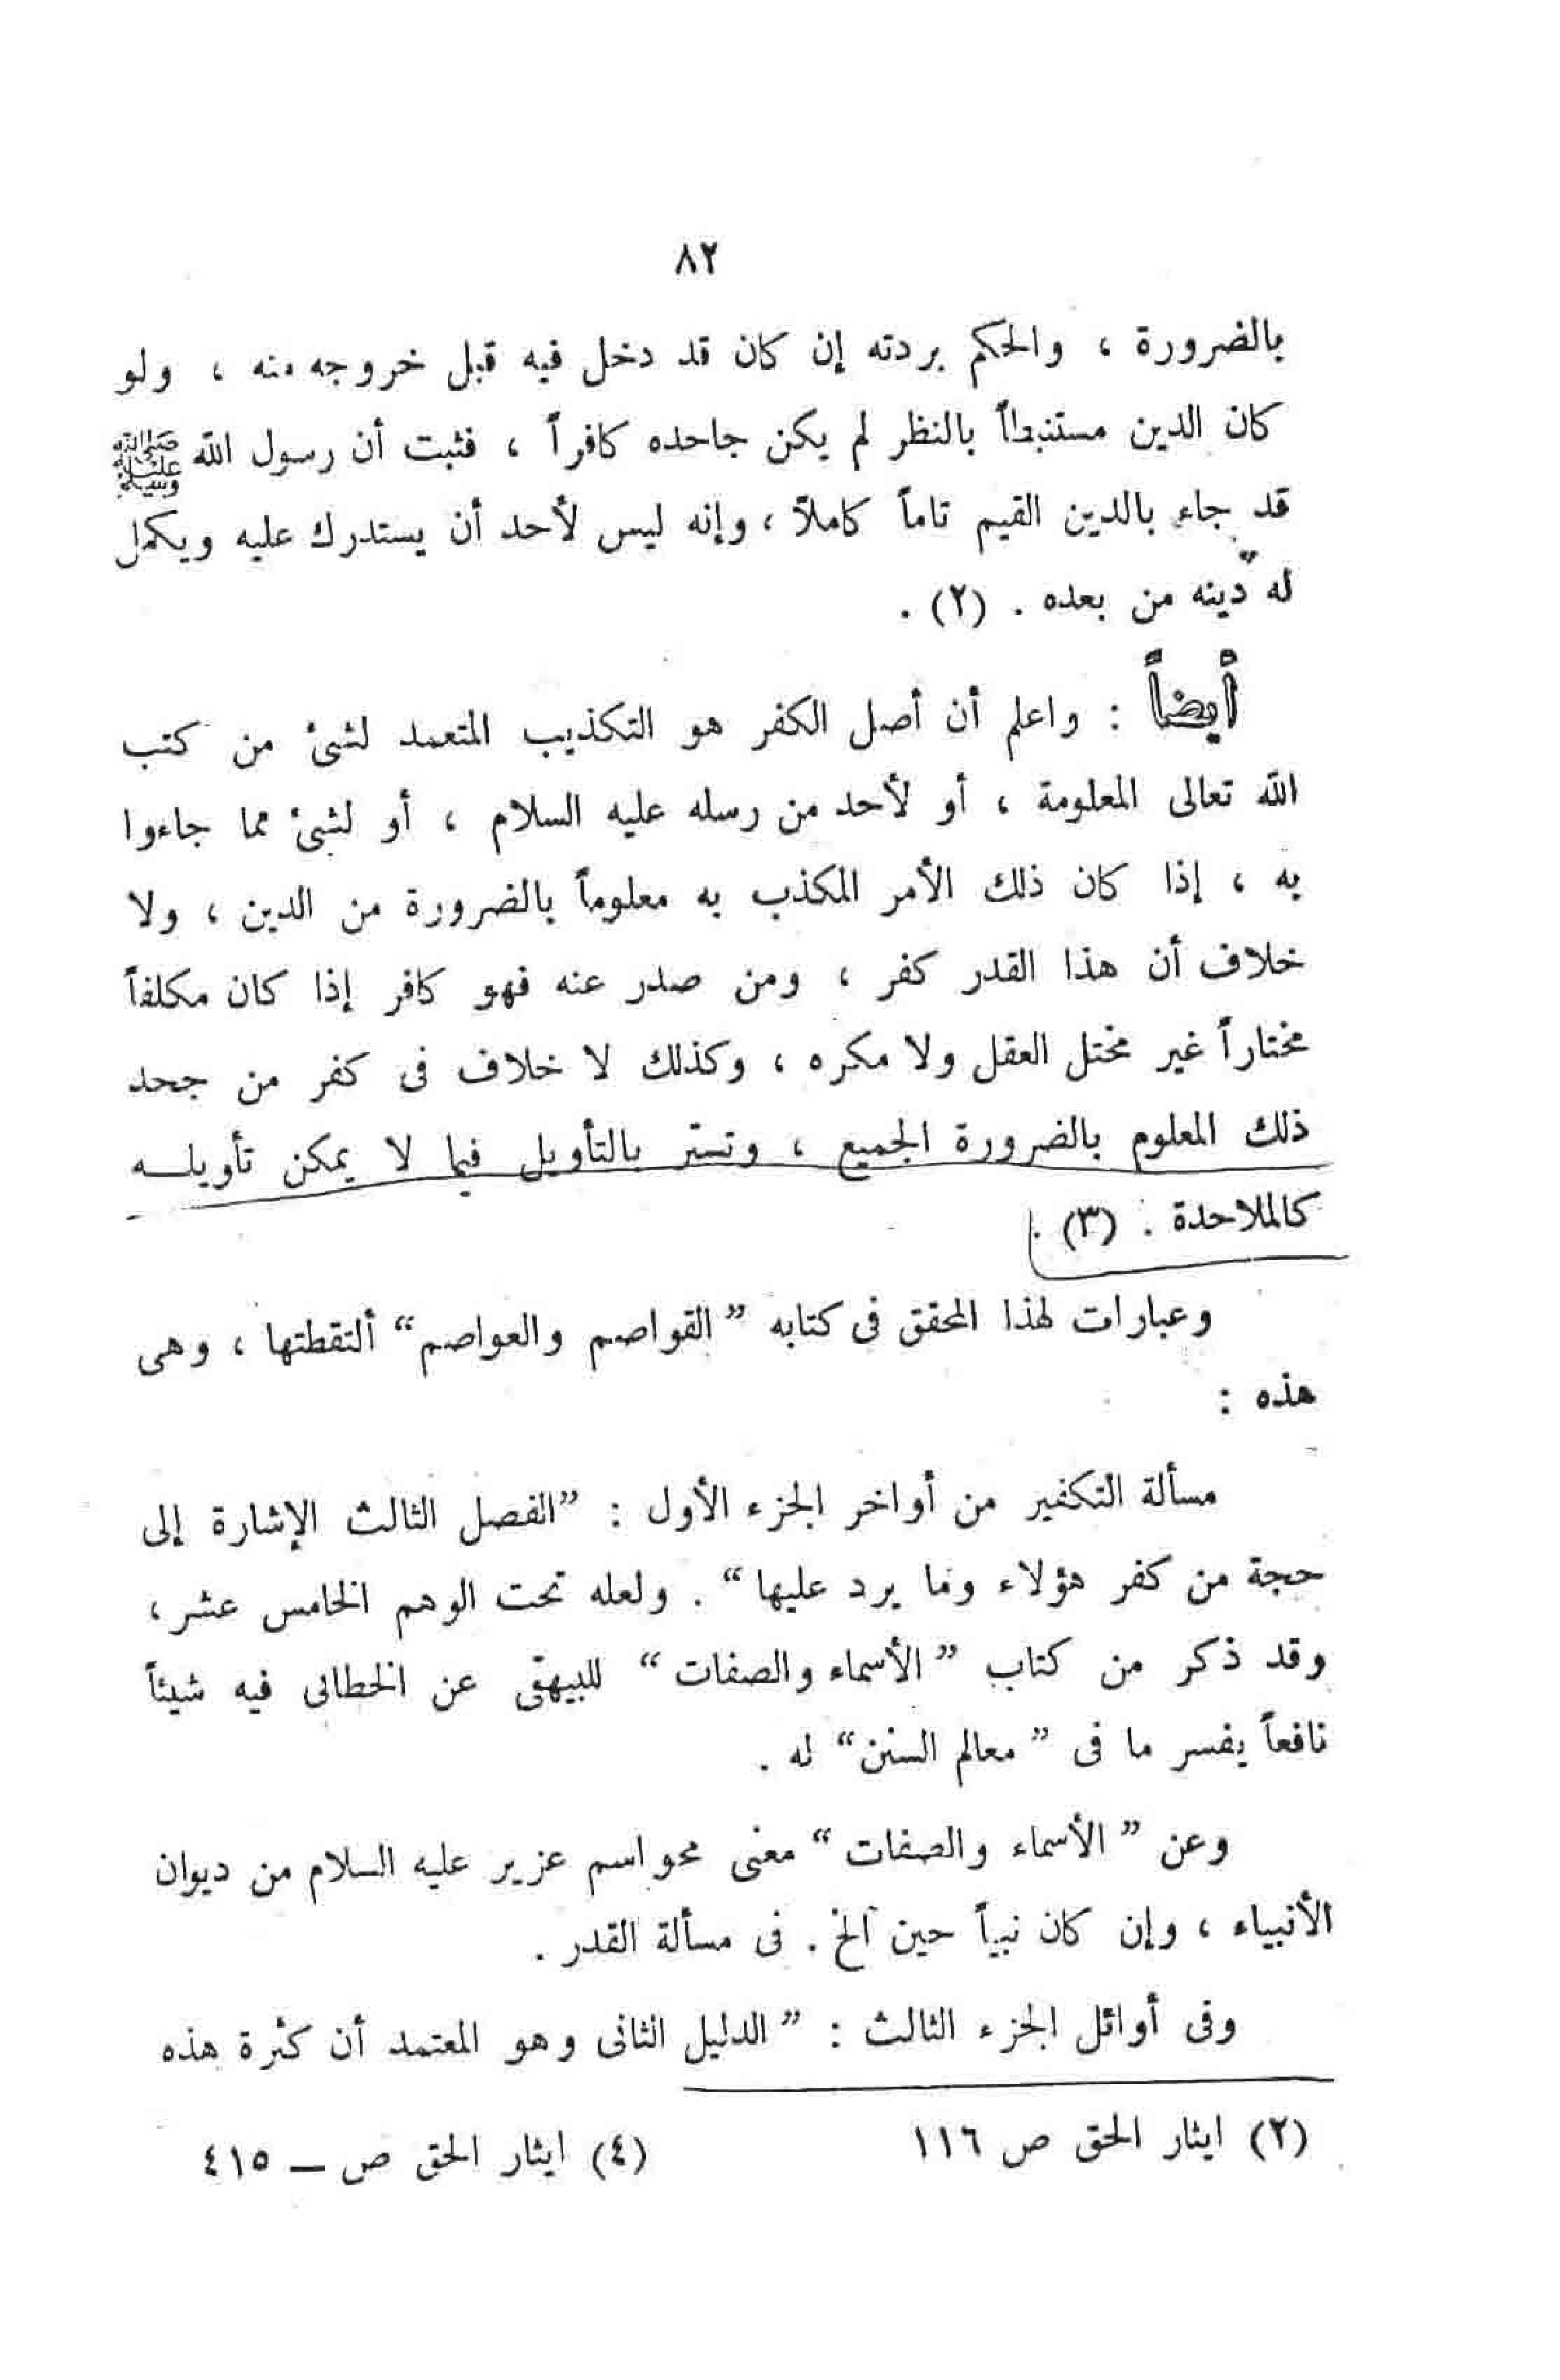 ٨٢
بالضرورة ، والحكم بردته إن كان قد دخل فيه قبل خروجه منه ، ولو
كان الدين مستنبطاً بالنظر لم يكن جاحده كافراً ، فثبت أن رسول الله ﷺ
قد جاء بالدين القيم تاماً كاملاً ، وإنه ليس لأحد أن يستدرك عليه ويكمل
له دينه من بعده . (٢) .
أيضاً : واعلم أن أصل الكفر هو التكذيب المتعمد لشئ من كتب
الله تعالى المعلومة ، أو لأحد من رسله عليه السلام ، أو لشئ مما جاءوا
به ، إذا كان ذلك الأمر المكذب به معلوماً بالضرورة من الدين ، ولا
خلاف أن هذا القدر كفر ، ومن صدر عنه فهو كافر إذا كان مكلفاً
مختاراً غير مختل العقل ولا مكره ، وكذلك لا خلاف فى كفر من جحد
ذلك المعلوم بالضرورة الجميع ، وتستّر بالتأويل فيما لا يمكن تأويله
كالملاحدة . (٣) .
وعبارات لهذا المحقق فى كتابه ”القواصم والعواصم“ ألتقطتها ، وهى
هذه :
مسألة التكفير من أواخر الجزء الأول : ”الفصل الثالث الإشارة إلى
حجة من كفر هؤلاء وما يرد عليها“ . ولعله تحت الوهم الخامس عشر ،
وقد ذكر من كتاب ”الأسماء والصفات“ للبيهقى عن الخطابى فيه شيئاً
نافعاً يفسر ما فى ”معالم السنن“ له .
وعن ”الأسماء والصفات“ معنى محو اسم عزير عليه السلام من ديوان
الأنبياء ، وإن كان نبياً حين الخ . فى مسألة القدر .
وفى أوائل الجزء الثالث : ”الدليل الثانى وهو المعتمد أن كثرة هذه
(٢) ايثار الحق ص ١١٦ (٤) ايثار الحق ص — ٤١٥